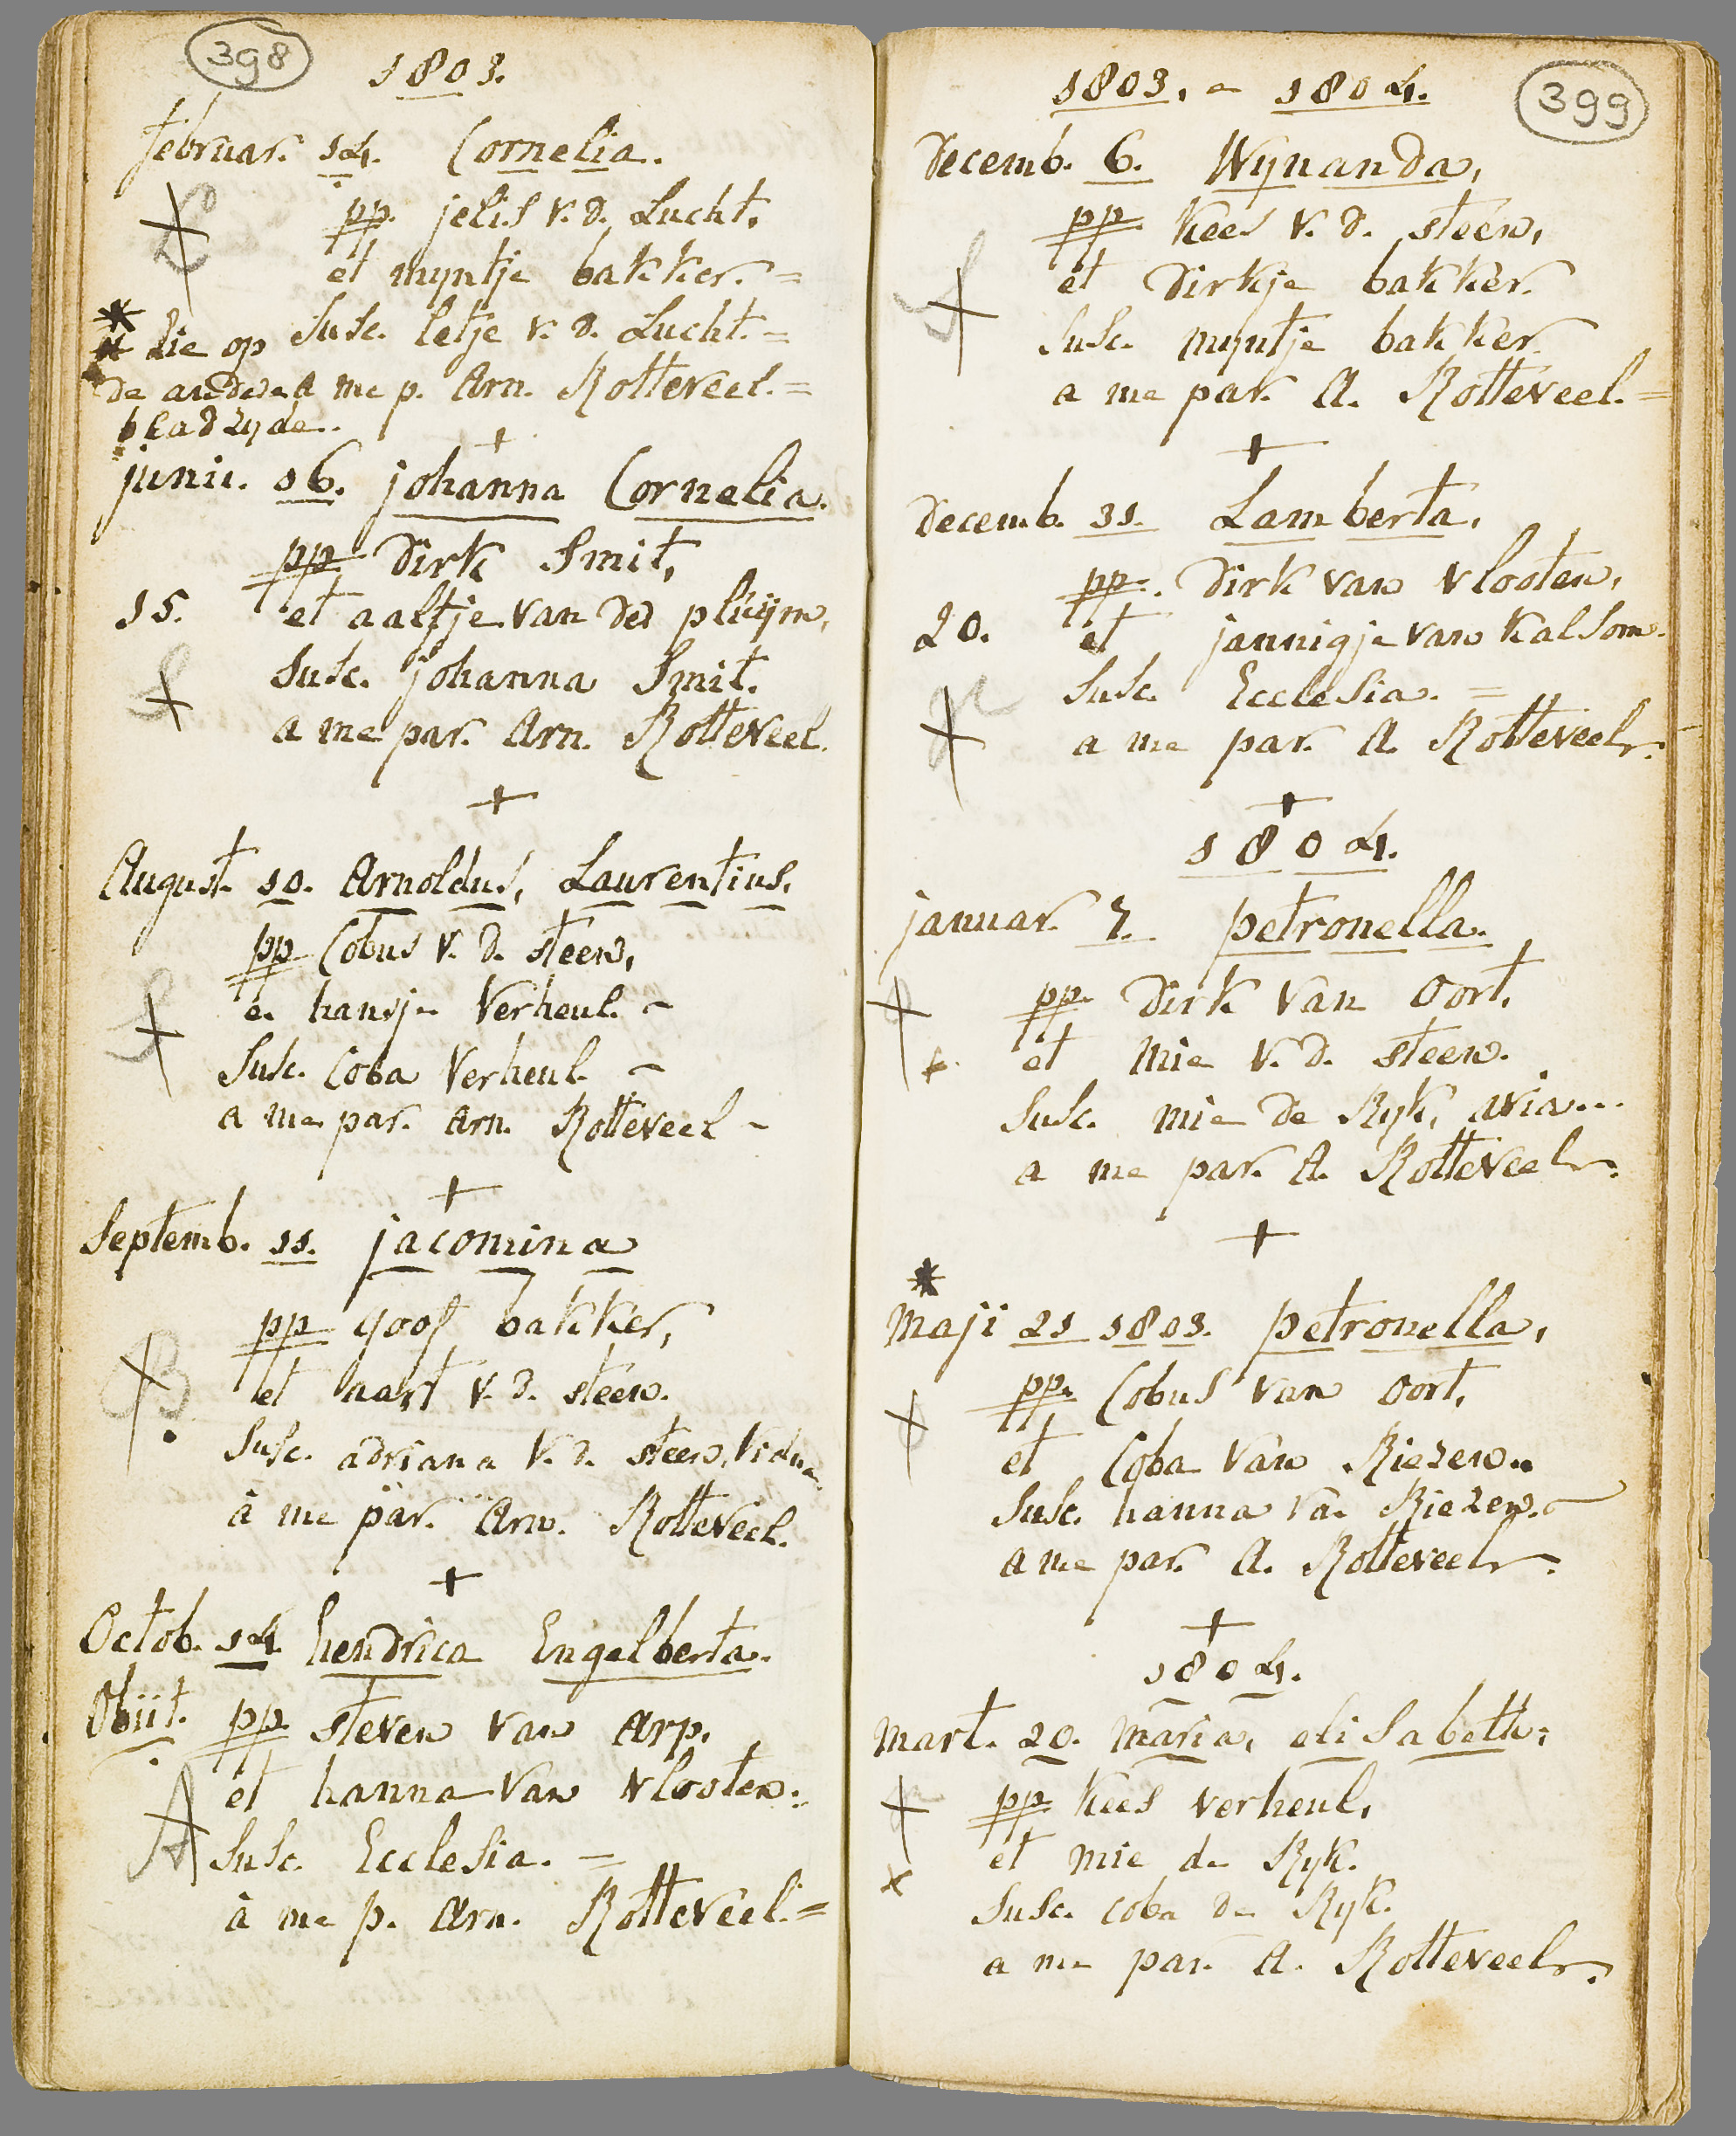 398
1803.
februar. 14. Cornelia.
pp. jelis v. d. Lucht,
et myntje bakker. =
Susc. letje v. d. Lucht. =
* die op
de andere a me p. Arn. Rotteveel. =
bladzyde.
+
junii. 16. johanna Cornelia.
pp Dirk Smit,
15. et aaltje van der pluijm,
Susc. johanna Smit.
a me par. Arn. Rotteveel.
+
August. 10. Arnoldus, Laurentius.
pp Cobus v. d. steen,
e. hansje Verheul. ~
Susc. Coba Verheul. ~
a me par. Arn. Rotteveel ~
+
Septemb. 11. jacomina
pp goof bakker,
et aart v. d. steen.
Susc. adriana v. d. steen, Vidua.
à me par. Arn. Rotteveel.
+
Octob. 14. hendrica Engelberta.
Obiit. pp. steven van Arp.
et hanna van Vlooten.
A Susc. Ecclesia. =
à me p. Arn. Rotteveel. =
399
1803. - 1804.
Decemb. 6. Wynanda,
pp Kees v. d. steen,
et Dirkje bakker.
Susc. myntje bakker
a me par. A. Rotteveel. =
+
Decemb. 31. Lamberta,
pp. Dirk van Vlooten,
20. et jannigje van Kalsom.
Susc. Ecclesia. =
a me par. A. Rotteveel.
+
1804.
januar. 7. petronella.
pp. Dirk Van Oort,
et Mie v. d. steen.
Susc. mie De Ryk, aria...
a me par. A. Rotteveel.
+
*
maji 21 1803. petronella,
pp. Cobus van oort,
et Coba van Riezen..
Susc. hanna va. Riezen.
a me par. A. Rotteveel.
+
1804.
mart. 20. maria, elisabeth:
pp Kees verheul,
et mie de Ryk.
x
Susc. coba De Ryk.
a me par. A. Rotteveel.